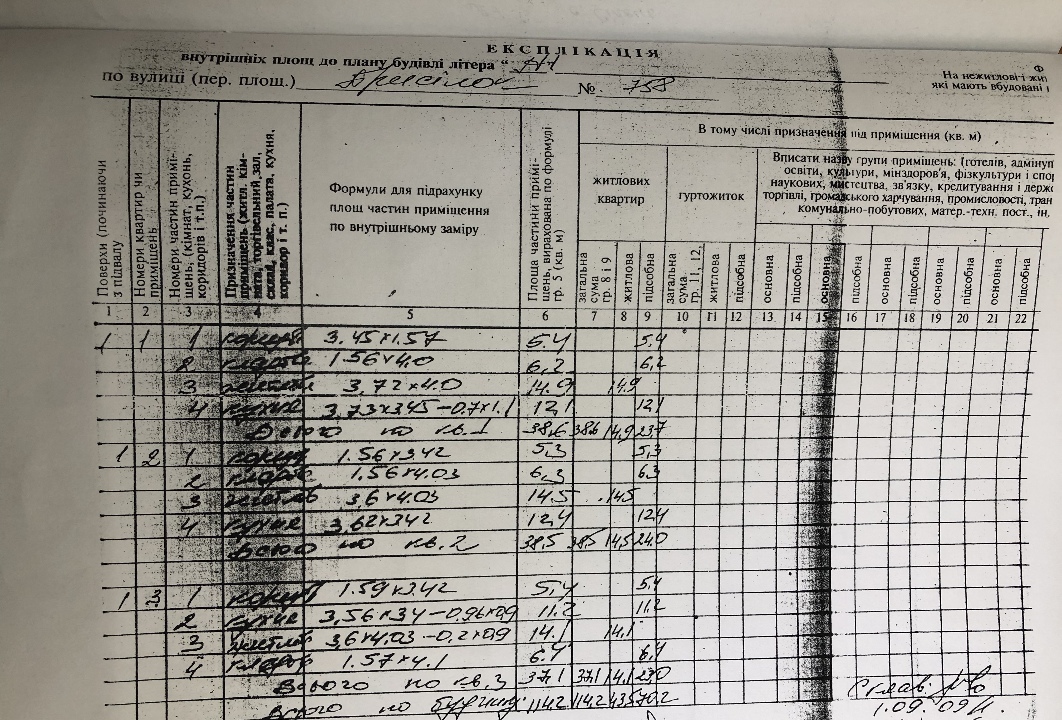 ЕКСПЛІКАЦІЯ
внутрішніх площ до плану будівлі літера "
по вулиці (пер. площ.) № 758
Ф
На нежитлові і жит
які мають вбудовані і
Поверхи (починаючи з підвалу
Номери квартир чи приміщень
Номери частин приміщень, (кімнат, кухонь, коридорів і т.п.)
Призначення частин приміщень (житл. кімната, торгівельний зал, склай, клас, палата, кухня, коридор і т. п.)
Формули для підрахунку
площ частин приміщення
по внутрішньому заміру
Площа частини приміщень, вирахована по формулі гр. 5 (кв. м)
В тому числі призначення під приміщення (кв. м)
житлових
квартир
гуртожиток
Вписати назву групи приміщень: (готелів, адмінуп
освіти, культури, мінздоров'я, фізкультури і спор
наукових, мистецтва, зв'язку, кредитування і держс
торгівлі, громадського харчування, промисловості, тран
комунально-побутових, матер.-техн. пост., ін.
загальна сума гр. 8 і 9 житлова підсобна загальна сума гр. 11, 12, житлова підсобна основна підсобна основна підсобна основна підсобна основна підсобна основна підсобна
1 2 3 4 5 6 7 8 9 10 11 12 13 14 15 16 17 18 19 20 21 22
1 1 1 корид 3.45×1.57 5.4 5,4
2 кладов 1.56×4.0 6,2 6,2
3 житлов 3,72×4.0 14.9 14.9
4 кухня 3,73×3.45-0.7×1.1 12,1 12,1
Всього по кв. 1 38,6 38,6 14,9 23,7
1 2 1 корид 1.56×3.42 5,3 5,3
2 кладов 1.56×4.03 6,3 6.3
3 житлов 3,6×4.03 14.5 14.5
4 кухня 3,62×3.42 12,4 12,4
Всього по кв. 2 38,5 38,5 14,5 24.0
1 3 1 корид 1.59×3.42 5,4 5,4
2 кухня 3,56×3.4-0.96×0,9 11.2 11.2
3 житлов 3,6×4.03-0.2×0,9 14.1 14,1
4 кладов 1.57×4.1 6.4 6,4
Всього по кв. 3 37,1 37,1 14,1 23,0
Всього по будинку: 114,2 114,2 43,5 70,2
1.09.09